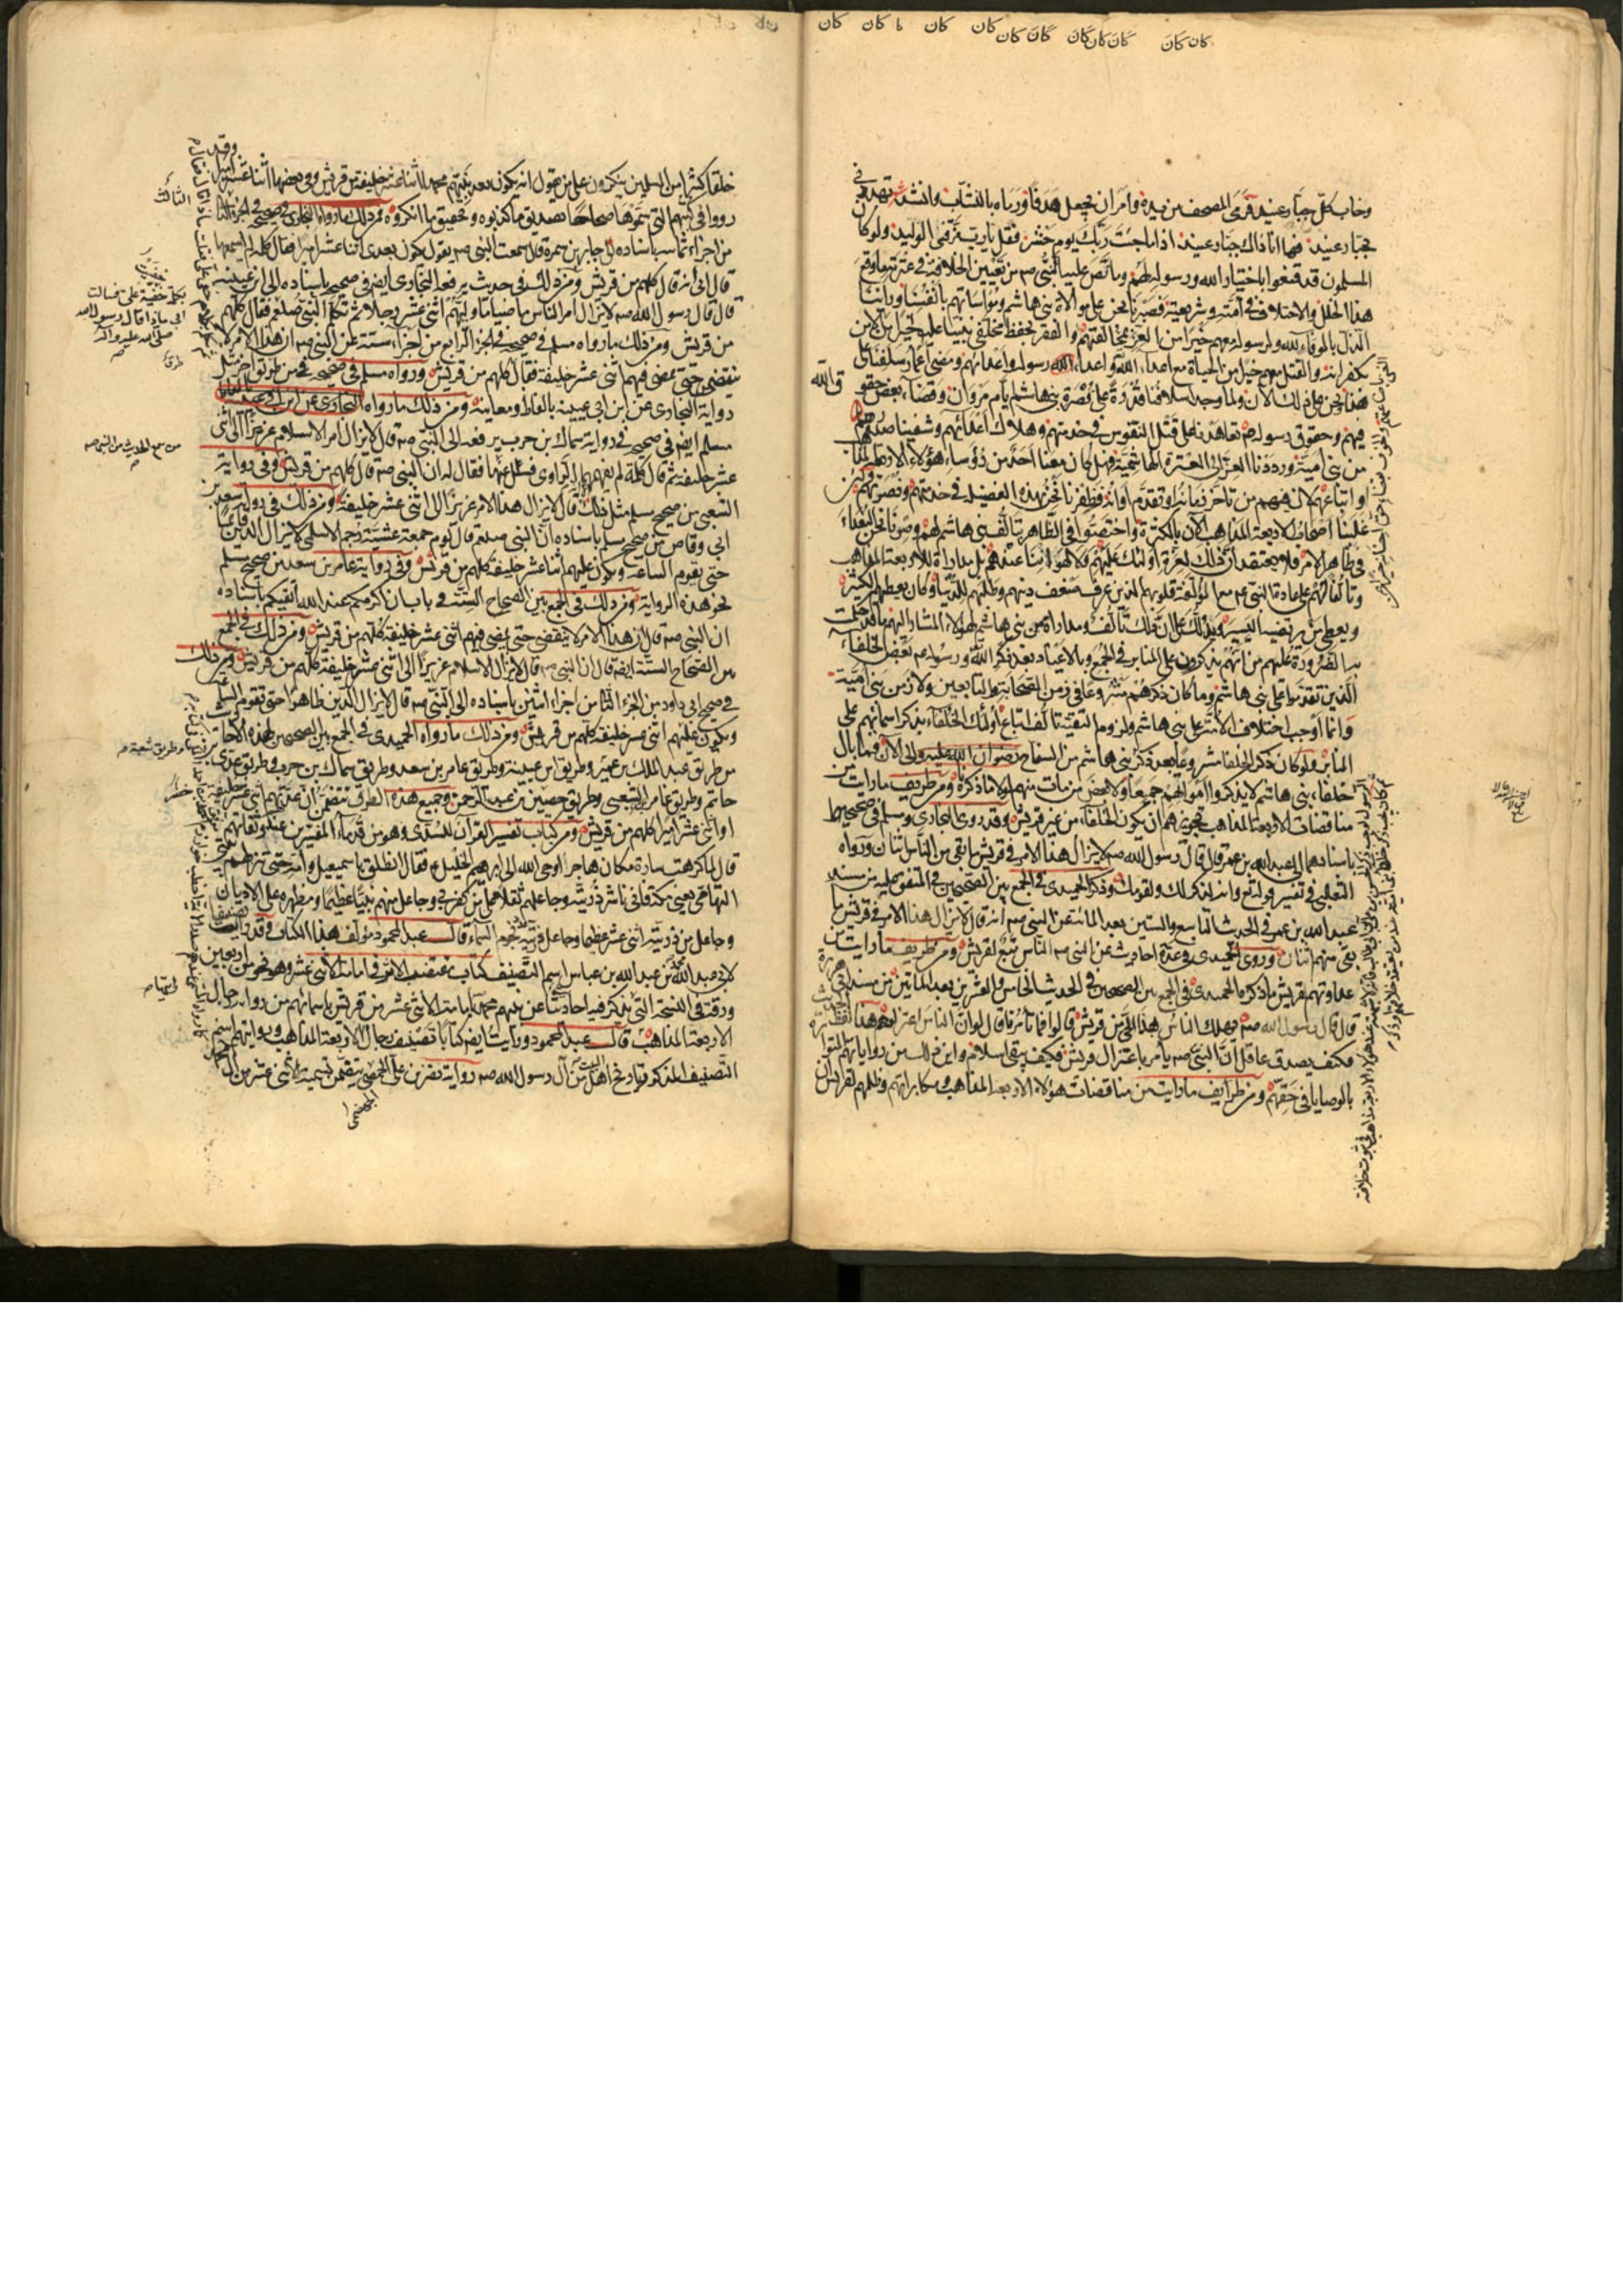 كان كان ا كان كان كان كان كان كان كان كان كان كان
وخاب كل جبار عنيد فرمى المصحف من يده وامر ان يجعل هدفا ورماه بالنشاب وانشد تهددني
بجبار عنيد فها انا ذاك جبار عنيد اذا ما جئت ربك يوم حشر فقل يا رب مزقني الوليد ولو كان
المسلمون قد قنعوا باختيار الله ورسوله لهم وما نص عليه النبي صه من تعيين الخلافة في عترته ما وقع
هذا الخلل والاختلاف في امته وشريعته فصبرنا نحن على موالاة بني هاشم ومواساتهم بانفسنا وراينا
الذل بالوفاء لله ولرسوله معهم خيرا من العز بمخالفتهم والفقر بحفظ مخلفي نبينا عليه خيرا من الامن
بكفرانه والقتل معهم خير من الحياة مع اعداء الله واعداء رسوله واعدائهم ومضى اعمار سلفنا على
هذا ونحن على ذلك الان ولما وجد اسلافنا قدرة على نصرة بني هاشم ايام مروان وقضاء بعض حقوق الله
فيهم وحقوق رسوله صه تعاهدنا على قتل النفوس في خدمتهم وهلاك اعدائهم وشفينا صدورهم
من بني امية ورددنا العز الى العترة الهاشمية فهل كان معنا احد من رؤساء هؤلاء الاربعة المذاهب
واتباعهم لان فيهم من تاخر زمانه او تقدم اوانه فظفرنا نحن بهذه الفضيلة في خدمتهم ونصرتهم ولئن
غلبنا اصحاب الاربعة المذاهب الان بالكثرة واختصوا في الظاهر بتالف بني هاشم لهم وصرنا نحن البعداء
في ظاهر الامر فلا يعتقد ان ذلك لعزة اولئك عليهم ولا لهواننا عندهم بل مداراة للاربعة المذاهب
وتالفا لهم على عادة النبي صه مع المؤلفة قلوبهم الذين عرف ضعف دينهم وطلبهم للدنيا وكان يعطيهم الكثير
ويعطي من يرتضيه اليسير ويدلك على ان ذلك تالف ومداراة من بني هاشم لهؤلاء المشار اليهم ما قد حلت
به الضرورة عليهم من انهم يذكرون على المنابر في الجمع والاعياد بعد ذكر الله ورسوله صه بعض الخلفاء
الذين تقدموا على بني هاشم وما كان ذكرهم مشروعا في زمن الصحابة والتابعين ولا زمن بني امية
وانما اوجب اختلاف الامة على بني هاشم ولزوم التقية تالف اتباع اولئك الخلفاء بذكر اسمائهم على
المنابر ولو كان ذكر الخلفا مشروعا بعد ذكر بني هاشم من السفاح رضوان الله عليه والى الان فما بال
خلفاء بني هاشم لا يذكروا امواتهم جميعا ولا بعض من مات منهم لولا ما ذكرناه ومن طريف ما رايت من
مناقضات الاربعة المذاهب تجويزهم ان يكون الخلفاء من غير قريش وقد روى البخاري ومسلم في صحيحيهما
باسنادهما الى عبد الله بن عمر قال قال رسول الله صه لا يزال هذا الامر في قريش ما بقي من الناس اثنان ورواه
الثعلبي في تفسير قوله تع وانه لذكر لك ولقومك وذكر الحميدي في الجمع بين الصحيحين في المتفق عليه من مسند
عبد الله بن عمر في الحديث التاسع والستين بعد المائة عن النبي صه انه قال لا يزال هذا الامر في قريش ما
بقي منهم اثنان وروى الحميدي في عدة احاديث عن النبي صه الناس تبع لقريش ومن طريف ما رايت من
عداوتهم لقريش ما ذكره الحميدي في الجمع بين الصحيحين في الحديث الخامس والعشرين بعد المائتين من مسند ابي هريرة
قال قال رسول الله صه يهلك الناس هذا الحي من قريش قالوا فما تامرنا قال لو ان الناس اعتزلوهم هذا لفظ الحديث
فكيف يصدق عاقل ان النبي صه يامر باعتزال قريش فكيف يبقى اسلام واين ذلك من رواياتهم المتواترة
بالوصايا في حقهم ومن طرايف ما رايت من مناقضات هؤلاء الاربعة المذاهب ومكابراتهم وظلمهم لقرابة
خلقا كثيرا من المسلمين ينكرون على من يقول انه يكون بعد نبيهم محمد اثنا عشر خليفة من قريش وفي بعضها اثنا عشر اميرا وقد
رووا في كتبهم التي سموها صحاحا تصديق ما كذبوه وتحقيق ما انكروه فمن ذلك ما رواه البخاري في صحيحه في الجزء الثامن
من اجزاء ثمانية باسناده الى جابر بن سمرة قال سمعت النبي صه يقول يكون بعدي اثنا عشر اميرا فقال كلمة لم اسمعها
قال ابي انه قال كلهم من قريش ومن ذلك في حديث يرفعه البخاري ايضا في صحيحه باسناده الى ابن عيينة
قال قال رسول الله صه لا يزال امر الناس ماضيا ما وليهم اثنى عشر رجلا ثم تكلم النبي صلعم فقال كلهم
من قريش ومن ذلك ما رواه مسلم في صحيحه في الجزء الرابع من اجزاء ستة عن النبي صه ان هذا الامر لا
ينقضي حتى يمضي فيهم اثنى عشر خليفة فقال كلهم من قريش ورواه مسلم في صحيحه من طريق اخر مثل
رواية البخاري عن ابن ابي عيينة بالفاظه ومعانيه ومن ذلك ما رواه
مسلم ايضا في صحيحه في رواية سماك بن حرب يرفعه الى النبي صه قال لا يزال امر الاسلام عزيزا الى اثنى
عشر خليفة ثم قال كلمة لم يفهمها الراوي فسئل عنها فقال له ان النبي صه قال كلهم من قريش وفي رواية
الشعبي من صحيح مسلم مثل ذلك قال لا يزال هذا الامر عزيزا الى اثنى عشر خليفة ومن ذلك في رواية سعد بن
ابي وقاص من صحيح مسلم باسناده ان النبي صلعم قال يوم جمعة عشية رجم الاسلمي لا يزال الدين قائما
حتى يقوم الساعة ويكون عليهم اثنا عشر خليفة كلهم من قريش وفي رواية عامر بن سعد من صحيح مسلم
نحو هذه الرواية ومن ذلك في الجمع بين الصحاح الستة في باب ان اكرمكم عند الله اتقيكم باسناده
ان النبي صه قال ان هذا الامر لا ينقضي حتى يمضي فيهم اثنى عشر خليفة كلهم من قريش ومن ذلك في الجمع
بين الصحاح الستة ايضا قال ان النبي صه قال لا يزال الاسلام عزيزا الى اثنى عشر خليفة كلهم من قريش ومن ذلك
في صحيح ابي داود من الجزء الثاني من اجزاء اثنين باسناده الى النبي صه قال لا يزال الدين ظاهرا حتى تقوم الساعة
ويكون عليهم اثنى عشر خليفة كلهم من قريش ومن ذلك ما رواه الحميدي في الجمع بين الصحيحين
من طريق عبد الملك بن عمير وطريق ابن عيينة وطريق عامر بن سعد وطريق سماك بن حرب وطريق عدي بن
حاتم وطريق عامر الشعبي وطريق حصين بن عبد الرحمن وجميع هذه الطرق تتضمن ان عدتهم اثنى عشر خليفة
او اثنى عشر اميرا كلهم من قريش ومن كتاب تفسير القران للسدي وهو من قدماء المفسرين عندهم وثقاتهم
قال لما كرهت سارة مكان هاجر اوحى الله الى ابرهيم الخليل ع فقال انطلق باسمعيل وامه حتى تنزله بيتي
التهامي يعني مكة فاني ناشر ذريته وجاعلهم ثقلا على من كفر بي وجاعل منهم نبيا عظيما ومظهره على الاديان
وجاعل من ذريته اثنى عشر عظيما وجاعل ذريته عدد نجوم السماء قال عبد المحمود مؤلف هذا الكتاب وقد رايت تصنيفا
لابي عبد الله محمد بن عبد الله بن عباس اسم التصنيف كتاب مقتضب الاثر في امامة الاثنى عشر وهو نحو من اربعين
ورقة في النسخة التي يذكر فيها احاديث عن نبيهم محمد صه بامامة الاثنى عشر من قريش باسمائهم من رواية رجال
الاربعة المذاهب قال عبد المحمود ورايت ايضا كتابا تصنيف رجال الاربعة المذاهب ورواياتهم اسم
التصنيف المذكور تاريخ اهل البيت من آل رسول الله صه رواية نصر بن علي الجهضمي يتضمن تسمية الاثنى عشر من آل محمد
الثالث
بكلمة خفيت علي فسالت
ابي ماذا قال رسول الله
صلى الله عليه واله
وطريق شعبة
الجهضمي